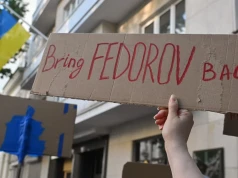 Bring FEDOROV Ba